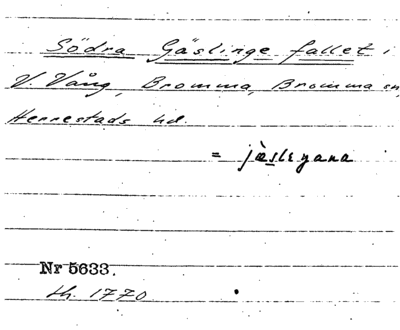 Södra Gäslinge fallet i
V. Vång, Bromma, Bromma sn,
Herrestads hd.
= jæ̀sleŋana
Nr 5633.
Lh. 1770